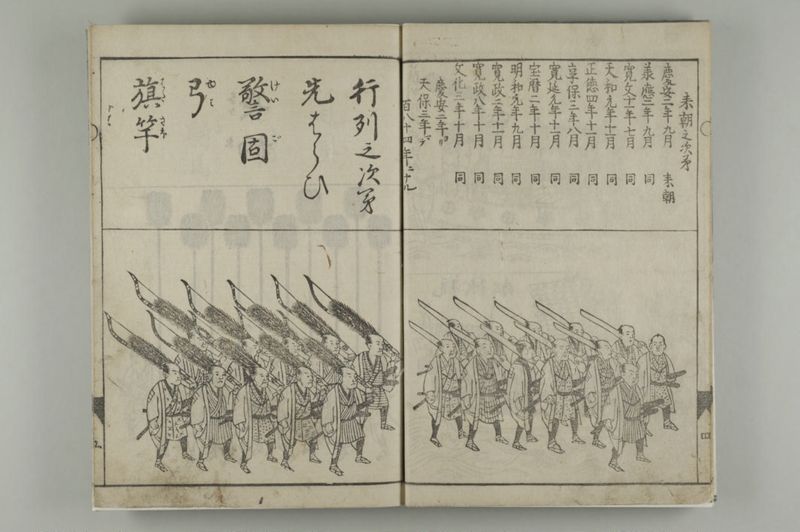 来朝之次第
慶安二年九月 来朝
承應二年九月 同
寛文十一年七月 同
天和元年十一月 同
正徳四年十一月 同
享保三年八月 同
寛延元年十一月 同
宝暦二年十一月 同
明和元年九月 同
寛政二年十一月 同
寛政八年十月 同
文化三年十月 同
慶安二年ゟ
天保三年デ
百八十四年ニナル
四
行列之次第
先はらひ
警固
けいご
弓
ゆみ
旗竿
はたざほ
五